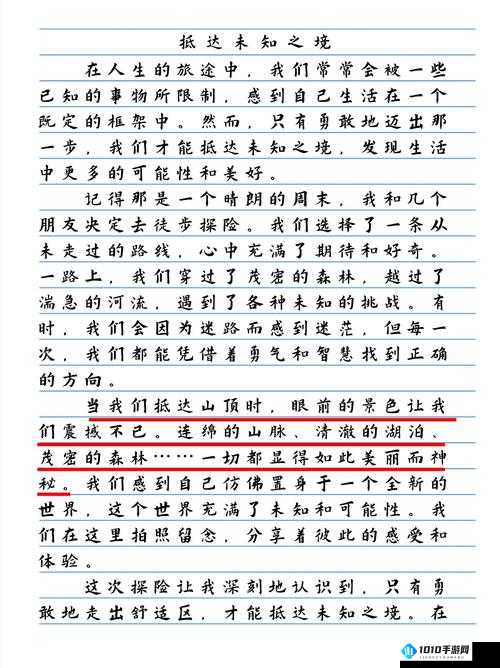 抵达未知之境
在人生的旅途中，我们常常会被一些
已知的事物所限制，感到自己生活在一个
既定的框架中。然而，只有勇敢地迈出那
一步，我们才能抵达未知之境，发现生活
中更多的可能性和美好。
记得那是一个晴朗的周末，我和几个
朋友决定去徒步探险。我们选择了一条从
未走过的路线，心中充满了期待和好奇。
一路上，我们穿过了茂密的森林，越过了
湍急的河流，遇到了各种未知的挑战。有
时，我们会因为迷路而感到迷茫，但每一
次，我们都能凭借着勇气和智慧找到正确
的方向。
当我们抵达山顶时，眼前的景色让我
们震撼不已。连绵的山脉、清澈的湖泊、
茂密的森林……一切都显得如此美丽而神
秘。我们感到自己仿佛置身于一个全新的
世界，这个世界充满了未知和可能性。我
们在这里拍照留念，分享着彼此的感受和
体验。
这次探险让我深刻地认识到，只有勇
敢地走出舒适区，才能抵达未知之境。在
1010手游网